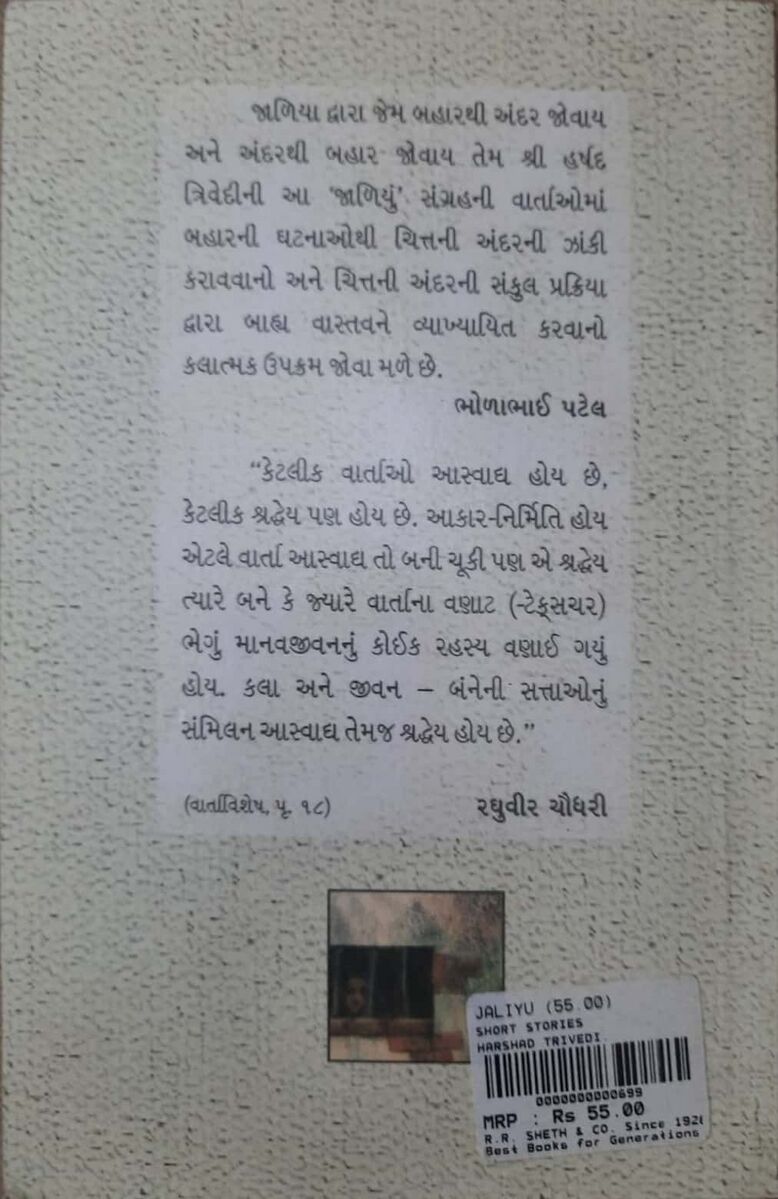 જાળિયા દ્વારા જેમ બહારથી અંદર જોવાય
અને અંદરથી બહાર જોવાય તેમ શ્રી હર્ષદ
ત્રિવેદીની આ ‘જાળિયું’ સંગ્રહની વાર્તાઓમાં
બહારની ઘટનાઓથી ચિત્તની અંદરની ઝાંકી
કરાવવાનો અને ચિત્તની અંદરની સંકુલ પ્રક્રિયા
દ્વારા બાહ્ય વાસ્તવને વ્યાખ્યાયિત કરવાનો
કલાત્મક ઉપક્રમ જોવા મળે છે.
ભોળાભાઈ પટેલ
“કેટલીક વાર્તાઓ આસ્વાદ્ય હોય છે,
કેટલીક શ્રદ્ધેય પણ હોય છે. આકાર-નિર્મિતિ હોય
એટલે વાર્તા આસ્વાદ્ય તો બની ચૂકી પણ એ શ્રદ્ધેય
ત્યારે બને કે જ્યારે વાર્તાના વણાટ (-ટેક્સચર)
ભેગું માનવજીવનનું કોઈક રહસ્ય વણાઈ ગયું
હોય. કલા અને જીવન – બંનેની સત્તાઓનું
સંમિલન આસ્વાદ્ય તેમજ શ્રદ્ધેય હોય છે.”
(વાર્તાવિશેષ, પૃ. ૧૮) રઘુવીર ચૌધરી
JALIYU (55.00)
SHORT STORIES
HARSHAD TRIVEDI.
0000000000699
MRP : Rs 55.00
R.R. SHETH & CO. Since 1926
Best Books for Generations